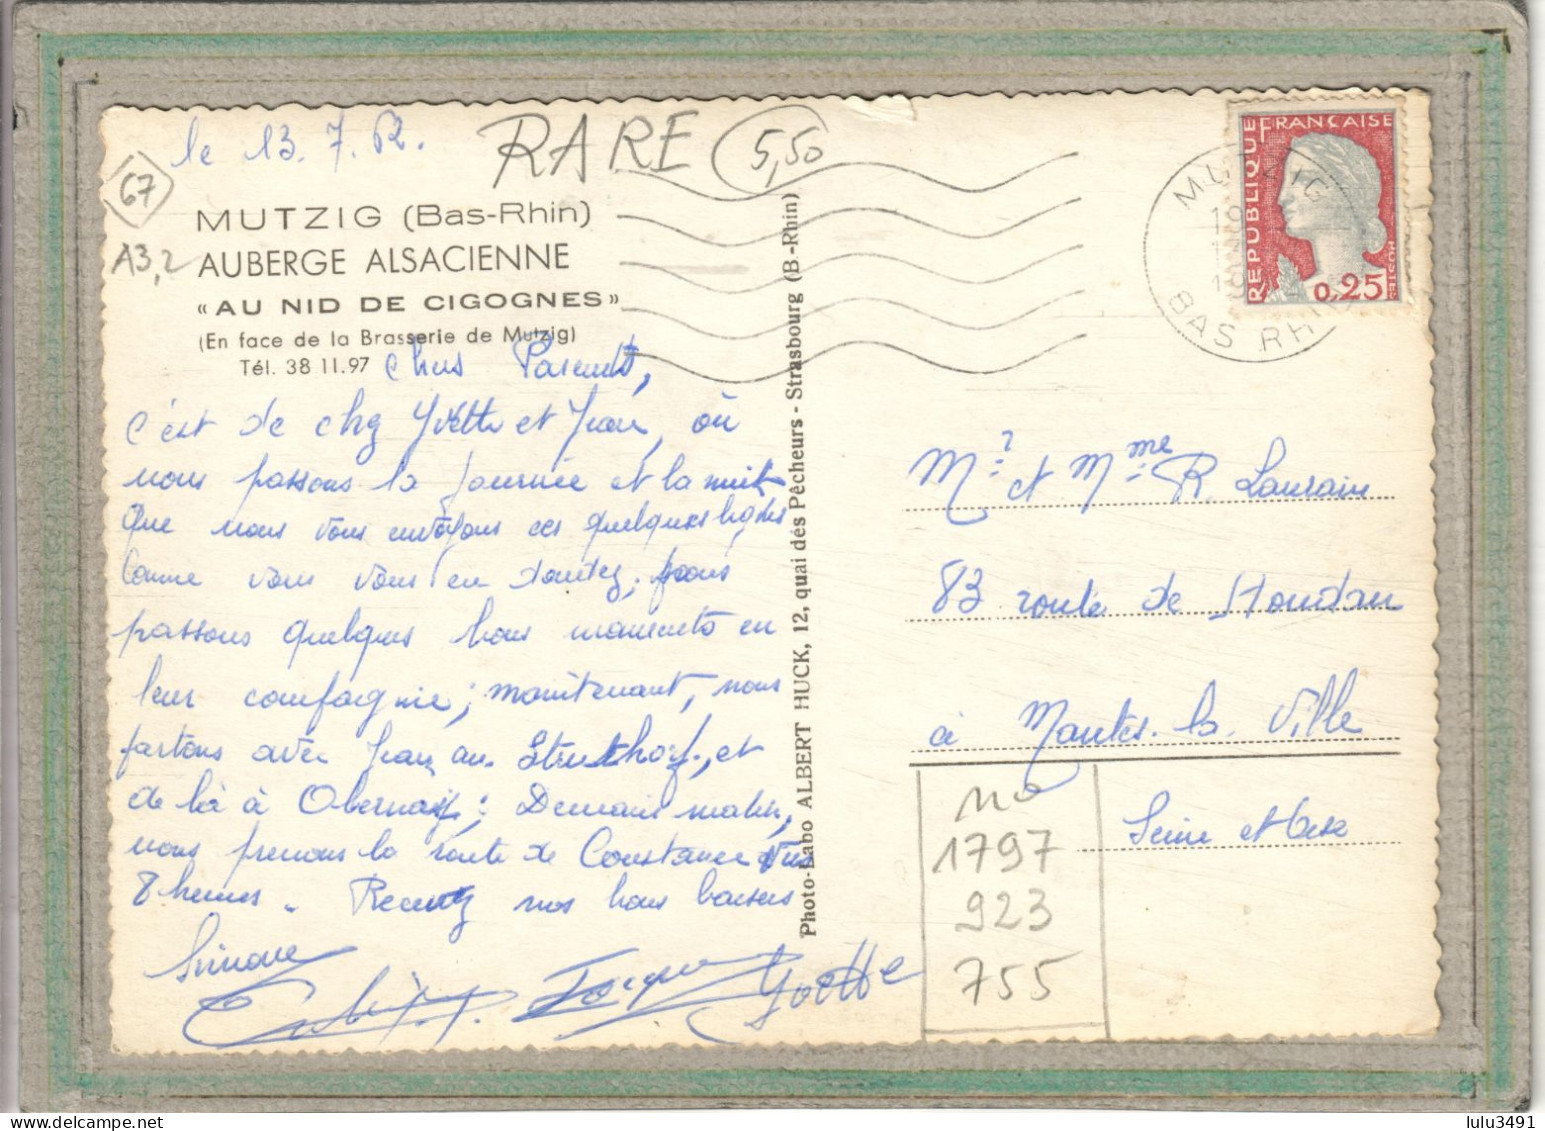 le 13.7.62.
RARE 5,50
67
A3,2
MUTZIG (Bas-Rhin)
AUBERGE ALSACIENNE
« AU NID DE CIGOGNES »
(En face de la Brasserie de Mutzig)
Tél. 38 11.97
Chers Parents,
c'est de chez Yvette et Jean, où
nous passons la journée et la nuit
que nous vous envoyons ces quelques lignes
Comme vous vous en doutez,
passons quelques bons moments en
leur compagnie; maintenant, nous
partons avec Jean au Struthof, et
de là à Obernai; Demain matin,
nous prenons la route de Constance vers
8 heures. Recevez nos bons baisers
Simone
Jacques
Yvette
Photo-Labo ALBERT HUCK, 12, quai des Pêcheurs - Strasbourg (B.-Rhin)
REPUBLIQUE FRANÇAISE
POSTES
0,25
MUTZIG
BAS RHIN
Mr et Mme R. Laurain
83 route de Houdan
à Mantes-la-Ville
Seine et Oise
no
1797
923
755
delcampe.net
lulu3491